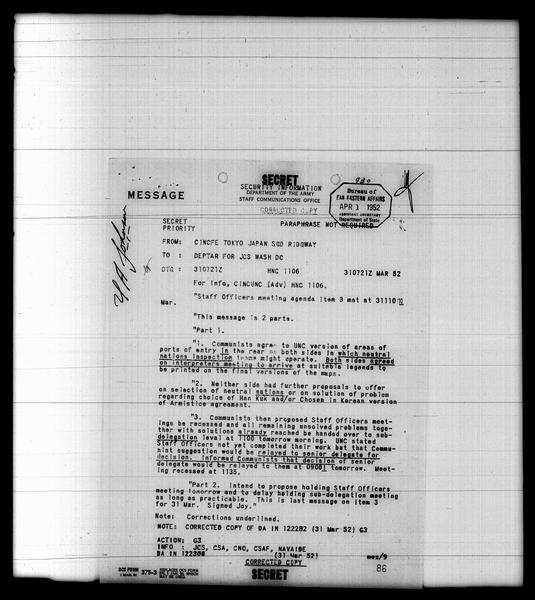 SECRET
SECURITY INFORMATION
DEPARTMENT OF THE ARMY
STAFF COMMUNICATIONS OFFICE
MESSAGE
CORRECTED COPY
Bureau of
FAR EASTERN AFFAIRS
APR 1 1952
ASSISTANT SECRETARY
Department of State
SECRET
PRIORITY
PARAPHRASE NOT REQUIRED
FROM: CINCFE TOKYO JAPAN SGD RIDGWAY
TO : DEPTAR FOR JCS WASH DC
DTG : 310721Z HNC 1106 310721Z MAR 52
For info, CINCUNC (Adv) HNC 1106.
"Staff Officers meeting agenda item 3 met at 311101I
Mar.
"This message is 2 parts.
"Part 1.
"1. Communists agree to UNC version of areas of
ports of entry in the rear on both sides in which neutral
nations inspection teams might operate. Both sides agreed
on interpreters meeting to arrive at suitable legends to
be printed on the final versions of the maps.
"2. Neither side had further proposals to offer
on selection of neutral nations or on solution of problem
regarding choice of Han Kuk and/or Chosen in Korean version
of Armistice agreement.
"3. Communists then proposed Staff Officers meet-
ings be recessed and all remaining unsolved problems toge-
ther with solutions already reached be handed over to sub-
delegation level at 1100 tomorrow morning. UNC stated
Staff Officers not yet completed their work but that Commu-
nist suggestion would be relayed to senior delegate for
decision. Informed Communists that decision of senior
delegate would be relayed to them at 0900I tomorrow. Meet-
ing recessed at 1135.
"Part 2. Intend to propose holding Staff Officers
meeting tomorrow and to delay holding sub-delegation meeting
as long as practicable. This is last message on item 3
for 31 Mar. Signed Joy."
Note: Corrections underlined.
NOTE: CORRECTED COPY OF DA IN 122282 (31 Mar 52) G3
ACTION: G3
INFO : JCS, CSA, CNO, CSAF, NAVAIDE
DA IN 122306 (31 Mar 52) mes/9
CORRECTED COPY
86
OCS FORM 375-3
1 MAR. 51
REPLACES OCS FORM
SECRET